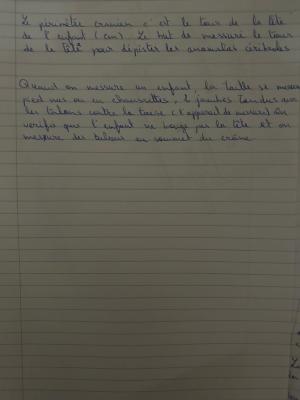 Le périmètre cranien c'est le tour de la tête
de l'enfant (cm). Le but de mesuré le tour
de la tête pour dépister les anomalies cérébrales
Quand on mesure un enfant, la taille se mesure
pied nus ou en chaussettes, 2 jambes tendus avec
les talons contre la toise (l'appareil de mesure) on
vérifie que l'enfant ne bouge pas la tête et on
mesure des talons au sommet du crâne